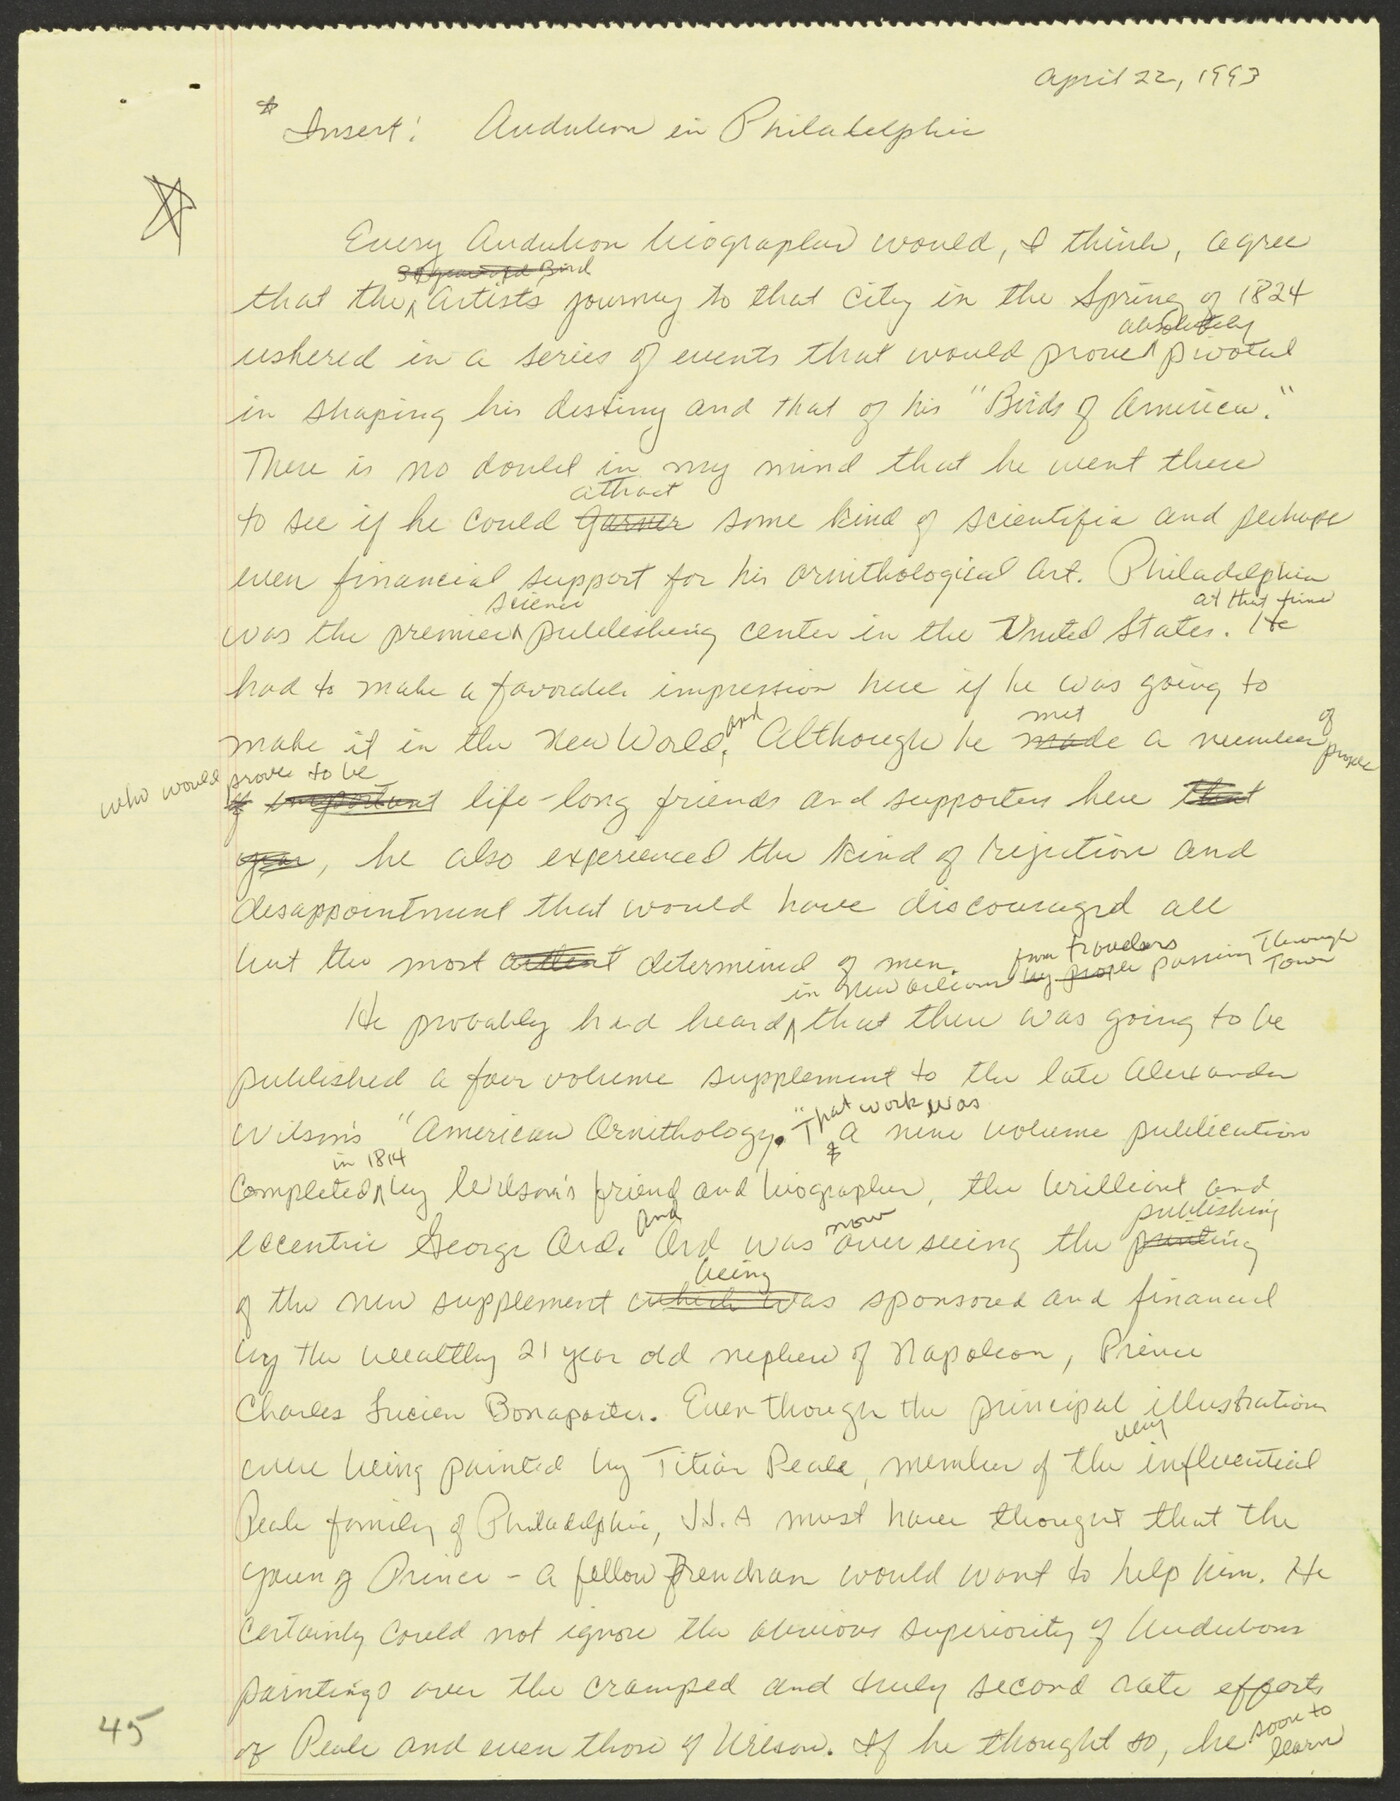 April 22, 1993
* Insert: Audubon in Philadelphia
Every Audubon biographer would, I think, agree
39 year old Bird
that the Artists journey to that city in the Spring of 1824
absolutely
ushered in a series of events that would prove pivotal
in shaping his destiny and that of his "Birds of America."
There is no doubt in my mind that he went there
attract
to see if he could garner some kind of scientific and perhaps
even financial support for his ornithological art. Philadelphia
science at that time
was the premier publishing center in the United States. He
had to make a favorable impression here if he was going to
and met of
make it in the New World. Although he made a number people
who would prove to be
of important life-long friends and supporters here that
year, he also experienced the kind of rejection and
disappointment that would have discouraged all
but the most determined of men.
from travelers Through
in New Orleans by people passing Town
He probably had heard that there was going to be
published a four volume supplement to the late Alexander
That work was
Wilson's "American Ornithology." a nine volume publication
in 1814
completed by Wilson's friend and biographer, the brilliant and
and now publishing
eccentric George Ord. Ord was over seeing the printing
being
of the new supplement which was sponsored and financed
by the wealthy 21 year old nephew of Napoleon, Prince
Charles Lucien Bonaparte. Even though the principal illustrations
very
were being painted by Titian Peale, member of the influential
Peale family of Philadelphia, J.J.A must have thought that the
young Prince - a fellow Frenchman would want to help him. He
certainly could not ignore the obvious superiority of Audubons
paintings over the cramped and truly second rate efforts
of Peale and even those of Wilson. If he thought so, he soon to
learn
45